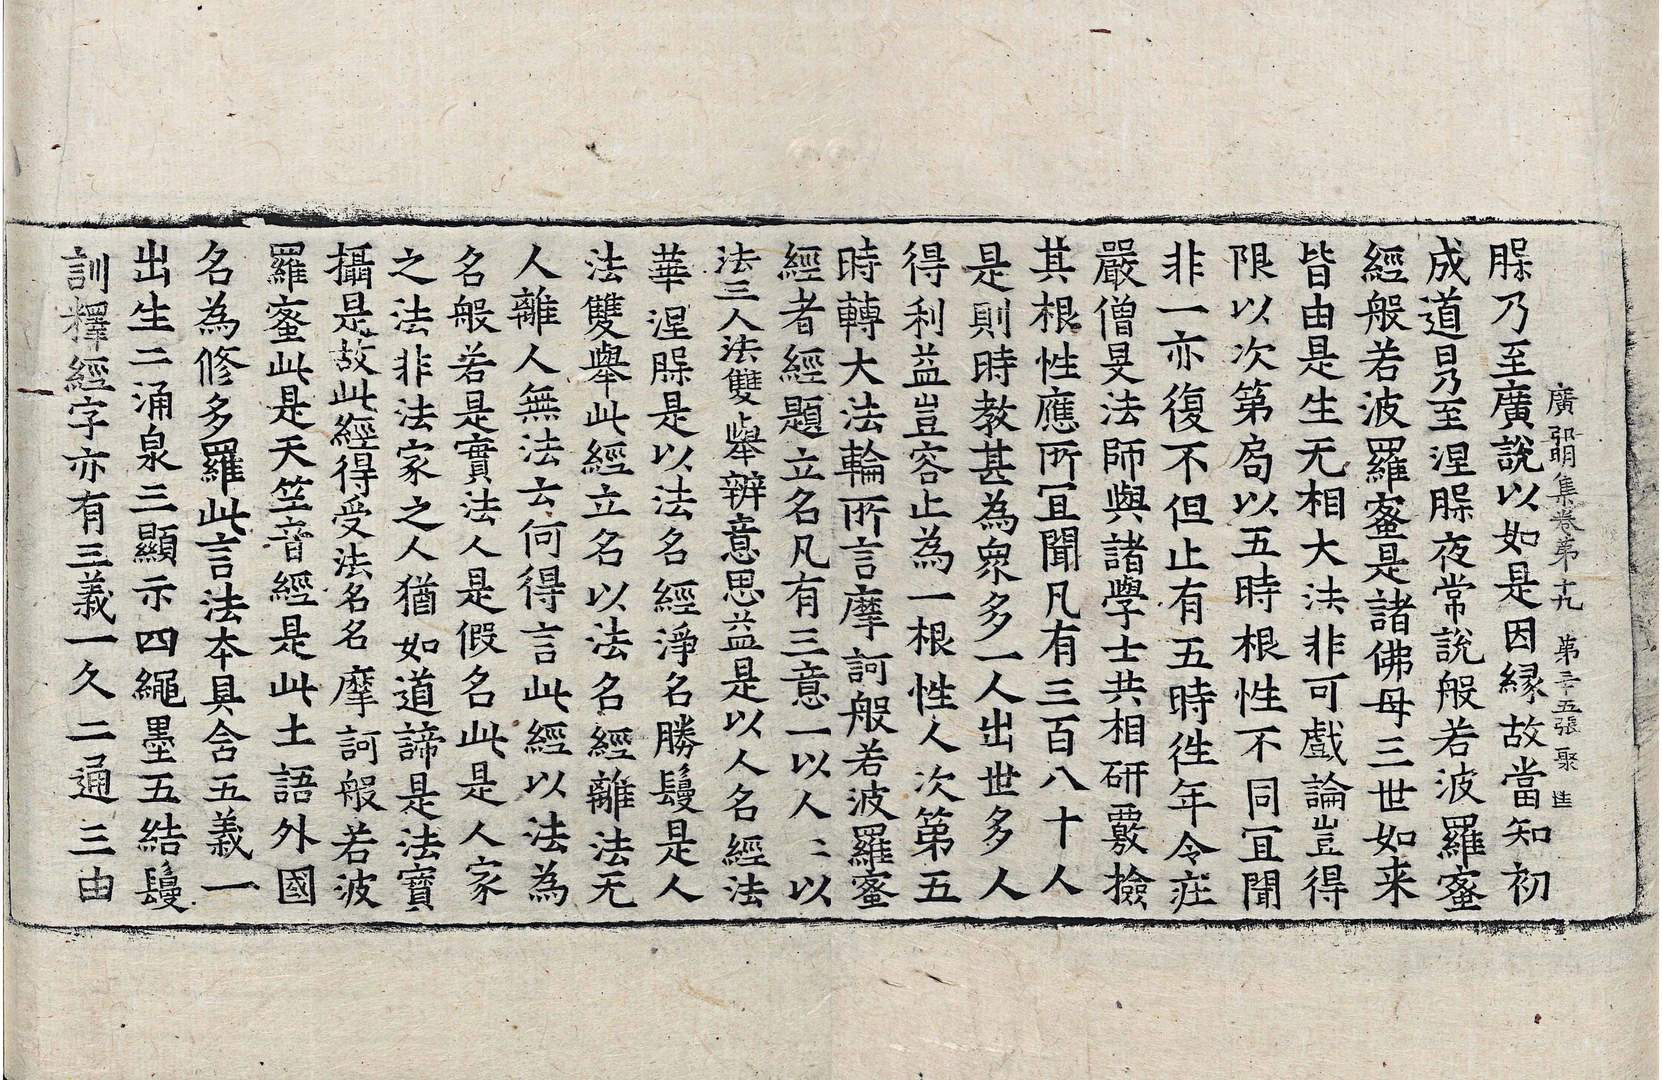 廣弘明集卷第十九 第三十五張 聚
腂乃至廣說以如是因緣故當知初
成道日乃至涅腂夜常說般若波羅蜜
經般若波羅蜜是諸佛母三世如来
皆由是生无相大法非可戲論豈得
限以次第局以五時根性不同冝聞
非一亦復不但止有五時徃年令莊
嚴僧旻法師與諸學士共相研覈撿
其根性應所冝聞凡有三百八十人
是則時教甚為衆多一人出世多人
得利益豈容止為一根性人次第五
時轉大法輪所言摩訶般若波羅蜜
經者經題立名凡有三意一以人二以
法三人法雙舉辨意思益是以人名經法
華涅腂是以法名經淨名勝鬘是人
法雙舉此經立名以法名經離法无
人離人無法云何得言此經以法為
名般若是實法人是假名此是人家
之法非法家之人猶如道諦是法寶
攝是故此經得受法名名摩訶般若波
羅蜜此是天竺音經是此土語外國
名為修多羅此言法本具含五義一
出生二涌泉三顯示四繩墨五結鬘
訓釋經字亦有三義一久二通三由